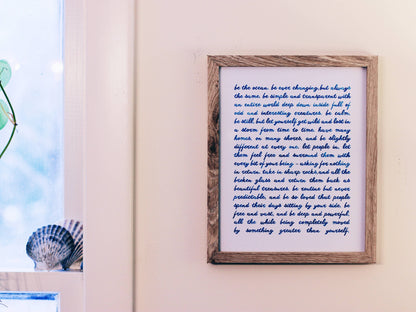 be the ocean. be ever changing, but always
the same. be simple and transparent with
an entire world deep down inside full of
odd and interesting creatures. be calm.
be still, but let yourself get wild and lost in
a storm from time to time. have many
homes, on many shores, and be slightly
different at every one. let people in. let
them feel free and surround them with
every bit of your being - asking for nothing
in return. take in sharp rocks, and all the
broken glass and return them back as
beautiful treasures. be routine but never
predictable, and be so loved that people
spend their days sitting by your side. be
free and vast, and be deep and powerful.
all the while being completely moved
by something greater than yourself.